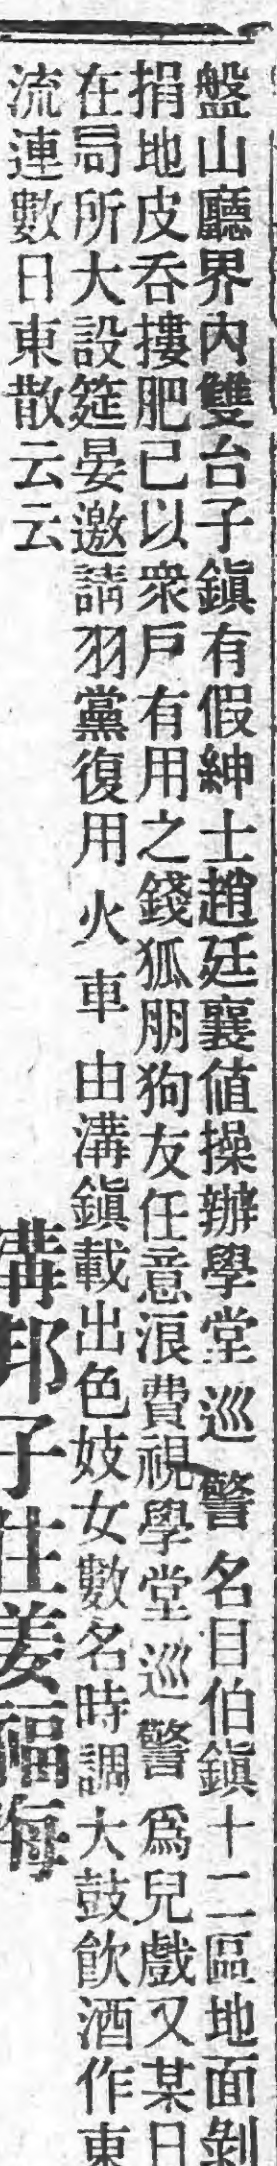 盤山廳界內雙台子鎭有假紳士趙廷襄値操辦學堂巡警名目伯鎭十二區地面剝
捐地皮吞摟肥己以衆戶有用之錢狐朋狗友任意浪費視學堂巡警爲兒戲又某日
在局所大設筵晏邀請羽黨復用火車由溝鎭載出色妓女數名時調大鼓飮酒作東
流連數日東散云云
溝邦子住姜福海